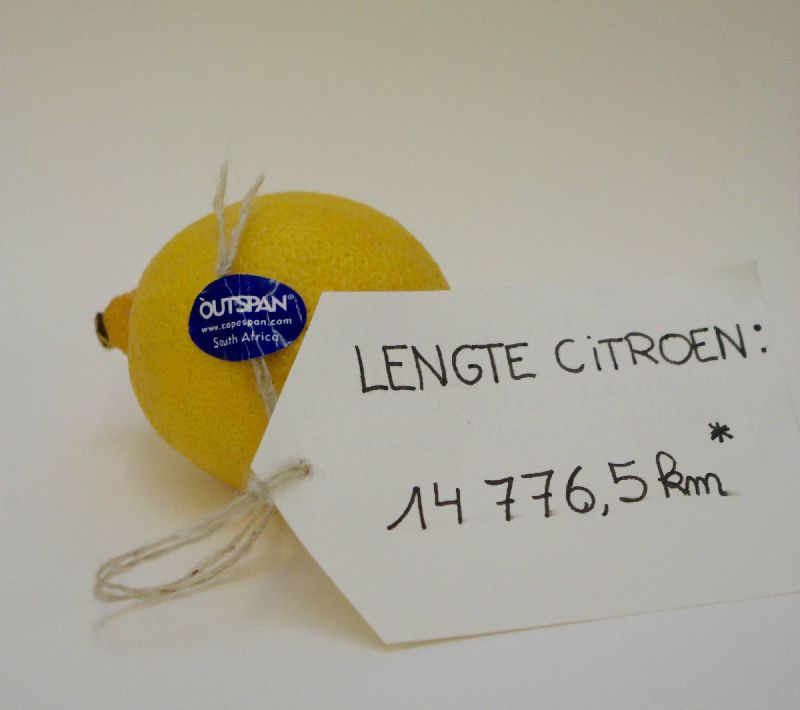 OUTSPAN®
www.capespan.com
South Africa
LENGTE CiTROEN:
14 776,5 km*